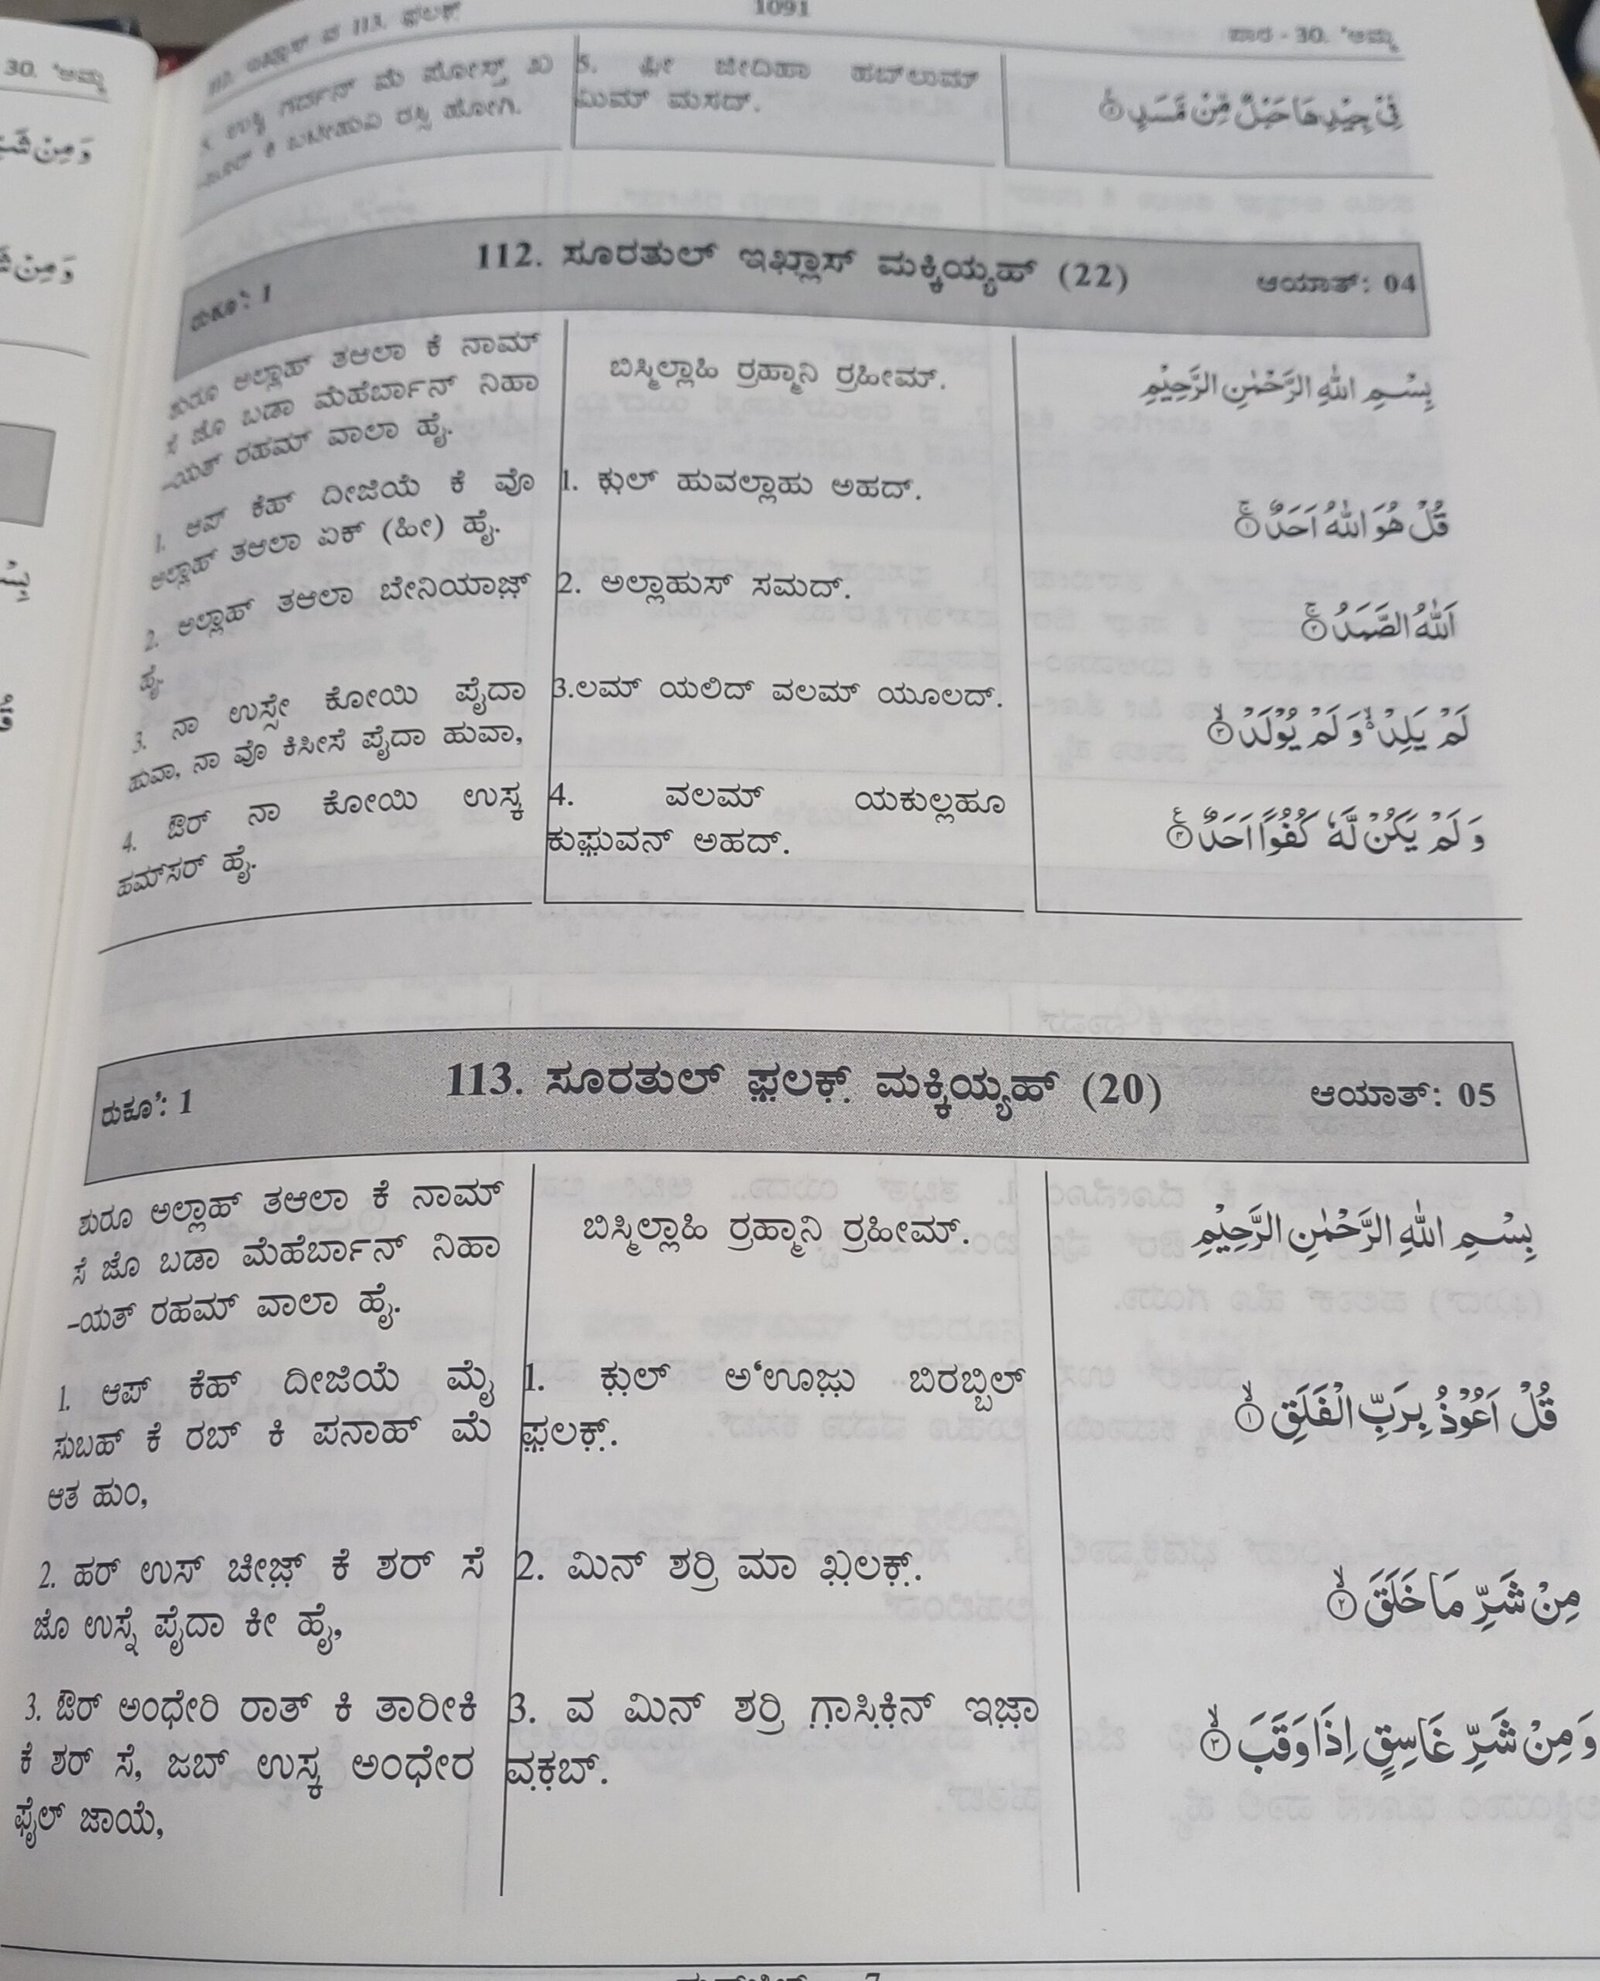 1091
ಪಾರ - 30. 'ಅಮ್ಮ
30. 'ಅಮ್ಮ
5. ಫೀ ಜೀದಿಹಾ ಹಬ್‌ಲುಮ್
ಮಿಮ್ ಮಸದ್.
فِیْ جِیْدِهَا حَبْلٌ مِّنْ مَّسَدٍ ۝۵
112. ಸೂರತುಲ್ ಇಖ್ಲಾಸ್ ಮಕ್ಕಿಯ್ಯಹ್ (22)
ರುಕೂ': 1
ಆಯಾತ್: 04
ಶುರೂ ಅಲ್ಲಾಹ್ ತಆಲಾ ಕೆ ನಾಮ್
ಸೆ ಜೊ ಬಡಾ ಮೆಹೆರ್ಬಾನ್ ನಿಹಾ
-ಯತ್ ರಹಮ್ ವಾಲಾ ಹೈ.
1. ಆಪ್ ಕೆಹ್ ದೀಜಿಯೆ ಕೆ ವೊ
ಅಲ್ಲಾಹ್ ತಆಲಾ ಏಕ್ (ಹೀ) ಹೈ.
2. ಅಲ್ಲಾಹ್ ತಆಲಾ ಬೇನಿಯಾಜ಼್
ಹೈ.
3. ನಾ ಉಸ್ಸೇ ಕೋಯಿ ಪೈದಾ
ಹುವಾ, ನಾ ವೊ ಕಿಸೀಸೆ ಪೈದಾ ಹುವಾ,
4. ಔರ್ ನಾ ಕೋಯಿ ಉಸ್ಕ
ಹಮ್‌ಸರ್ ಹೈ.
ಬಿಸ್ಮಿಲ್ಲಾಹಿ ರ್ರಹ್ಮಾನಿ ರ್ರಹೀಮ್.
1. ಕ಼ುಲ್ ಹುವಲ್ಲಾಹು ಅಹದ್.
2. ಅಲ್ಲಾಹುಸ್ ಸಮದ್.
3.ಲಮ್ ಯಲಿದ್ ವಲಮ್ ಯೂಲದ್.
4. ವಲಮ್ ಯಕುಲ್ಲಹೂ
ಕುಫ಼ುವನ್ ಅಹದ್.
بِسْمِ اللّٰهِ الرَّحْمٰنِ الرَّحِیْمِ
قُلْ هُوَ اللّٰهُ اَحَدٌ ۚ۝۱
اَللّٰهُ الصَّمَدُ ۚ۝۲
لَمْ یَلِدْ ۙ۬ وَ لَمْ یُوْلَدْ ۙ۝۳
وَ لَمْ یَكُنْ لَّهٗ كُفُوًا اَحَدٌ ۠۝۴
113. ಸೂರತುಲ್ ಫ಼ಲಕ಼್ ಮಕ್ಕಿಯ್ಯಹ್ (20)
ರುಕೂ': 1
ಆಯಾತ್: 05
ಶುರೂ ಅಲ್ಲಾಹ್ ತಆಲಾ ಕೆ ನಾಮ್
ಸೆ ಜೊ ಬಡಾ ಮೆಹೆರ್ಬಾನ್ ನಿಹಾ
-ಯತ್ ರಹಮ್ ವಾಲಾ ಹೈ.
1. ಆಪ್ ಕೆಹ್ ದೀಜಿಯೆ ಮೈ
ಸುಬಹ್ ಕೆ ರಬ್ ಕಿ ಪನಾಹ್ ಮೆ
ಆತ ಹುಂ,
2. ಹರ್ ಉಸ್ ಚೀಜ಼್ ಕೆ ಶರ್ ಸೆ
ಜೊ ಉಸ್ನೆ ಪೈದಾ ಕೀ ಹೈ,
3. ಔರ್ ಅಂಧೇರಿ ರಾತ್ ಕಿ ತಾರೀಕಿ
ಕೆ ಶರ್ ಸೆ, ಜಬ್ ಉಸ್ಕ ಅಂಧೇರ
ಫೈಲ್ ಜಾಯೆ,
ಬಿಸ್ಮಿಲ್ಲಾಹಿ ರ್ರಹ್ಮಾನಿ ರ್ರಹೀಮ್.
1. ಕ಼ುಲ್ ಅ‘ಊಜ಼ು ಬಿರಬ್ಬಿಲ್
ಫ಼ಲಕ಼್.
2. ಮಿನ್ ಶರ್ರಿ ಮಾ ಖ಼ಲಕ಼್.
3. ವ ಮಿನ್ ಶರ್ರಿ ಗ಼ಾಸಿಕ಼ಿನ್ ಇಜ಼ಾ
ವಕ಼ಬ್.
بِسْمِ اللّٰهِ الرَّحْمٰنِ الرَّحِیْمِ
قُلْ اَعُوْذُ بِرَبِّ الْفَلَقِ ۙ۝۱
مِنْ شَرِّ مَا خَلَقَ ۙ۝۲
وَ مِنْ شَرِّ غَاسِقٍ اِذَا وَقَبَ ۙ۝۳